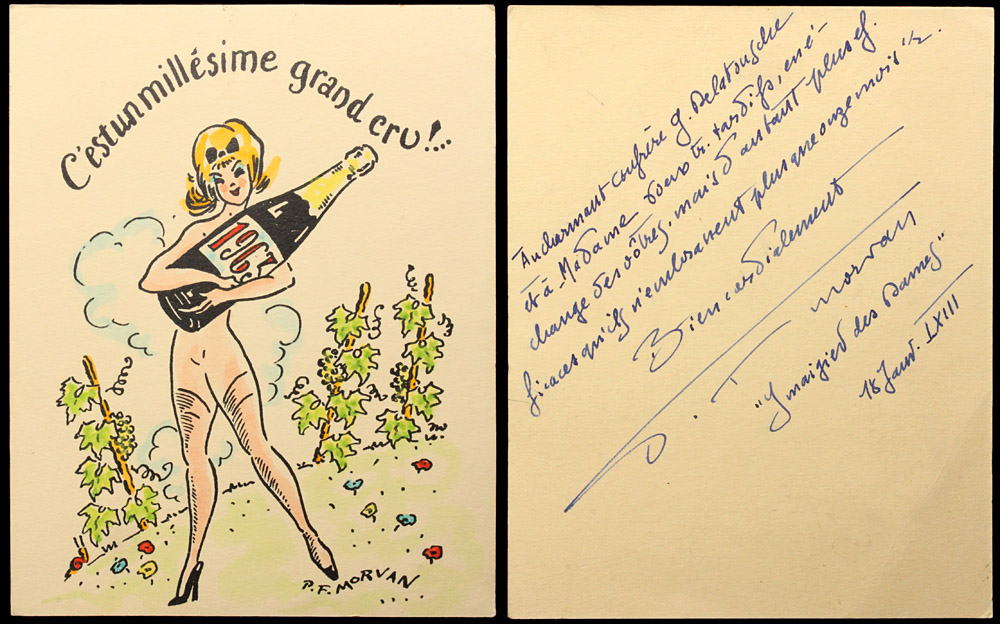 C'est un millésime grand cru!..
1963
P.F. MORVAN
Au charmant confrère G. Delatousche
et à Madame voeux tr. tardifs, en é-
change des vôtres, mais d'autant plus ef-
ficaces qu'ils n'en lasseront plus que onze mois 1/2.
Bien cordialement
P. F. morvan
des Dames"
18 Janv. LXIII